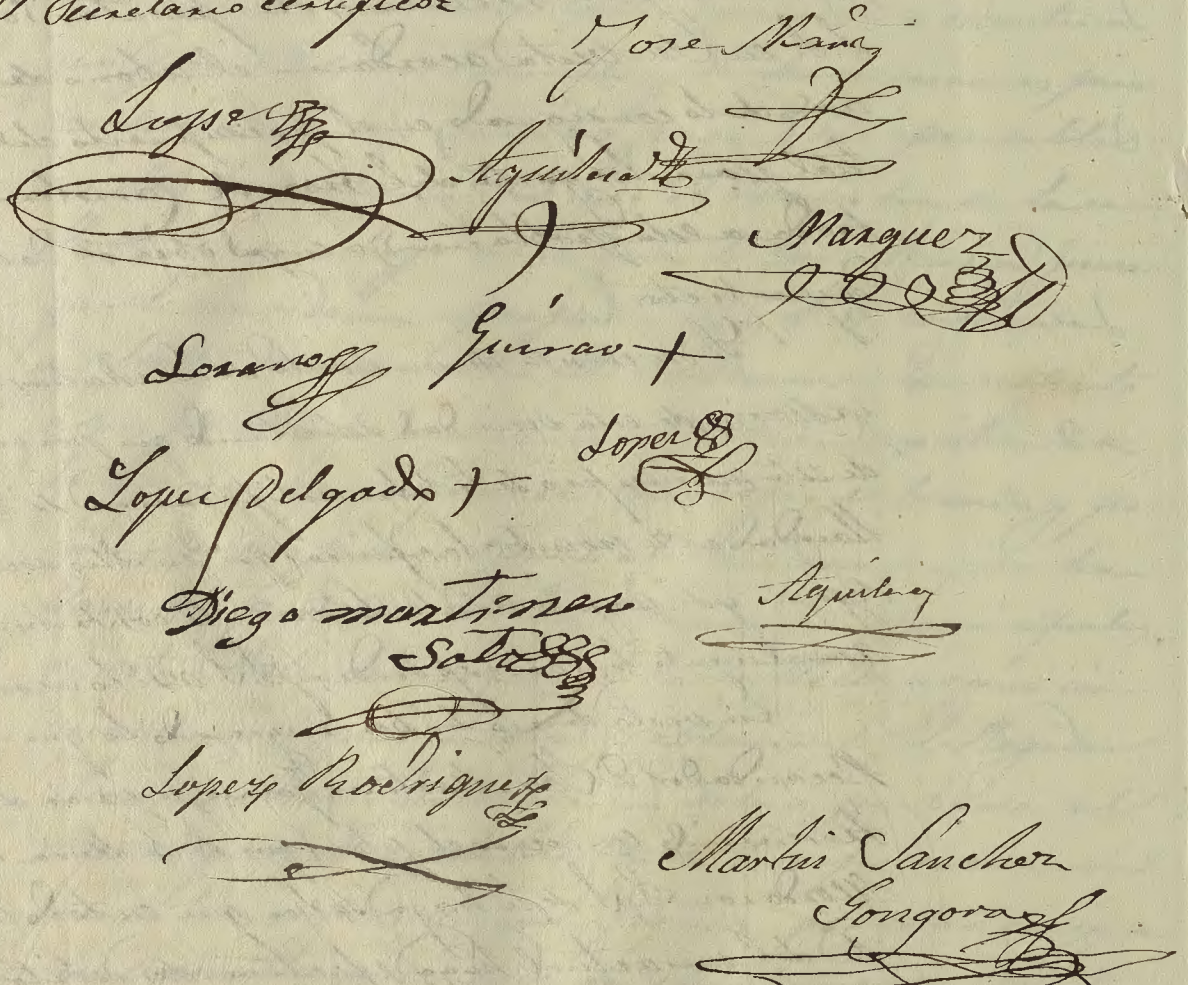 Secretario certifico=
Jose María
Lopez
Aguilera
Marquez
Lozano
Guirao +
Lopez
Lopez Delgado +
Diego martinez
Soto
Aguilera
Lopez Rodriguez
Martin Sanchez
Gongora